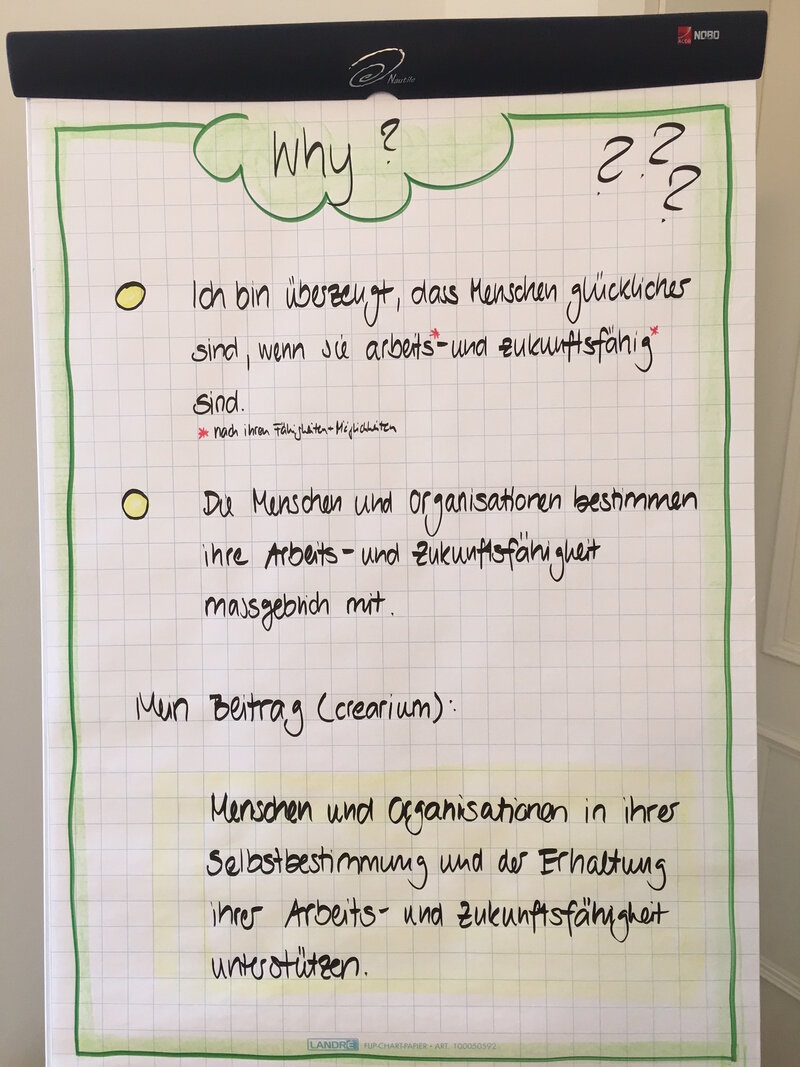 NOBO
Nautile
Why?
? ? ?
Ich bin überzeugt, dass Menschen glücklicher
sind, wenn sie arbeits*- und zukunftsfähig*
sind.
* nach ihren Fähigkeiten + Möglichkeiten
Die Menschen und Organisationen bestimmen
ihre Arbeits- und Zukunftsfähigkeit
massgeblich mit.
Mein Beitrag (crearium):
Menschen und Organisationen in ihrer
Selbstbestimmung und der Erhaltung
ihrer Arbeits- und Zukunftsfähigkeit
unterstützen.
LANDRÉ FLIP-CHART-PAPIER • ART. 100050592